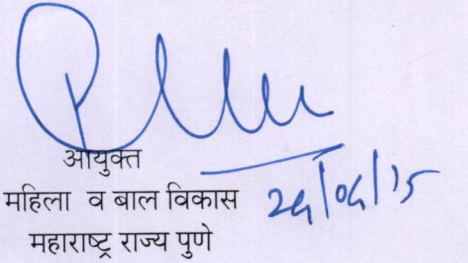 आयुक्त
महिला व बाल विकास
महाराष्ट्र राज्य पुणे